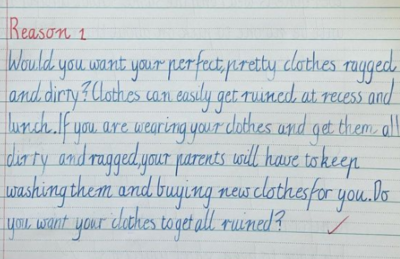 Reason 1
Would you want your perfect, pretty clothes ragged
and dirty? Clothes can easily get ruined at recess and
lunch. If you are wearing your clothes and get them all
dirty and ragged, your parents will have to keep
washing them and buying new clothes for you. Do
you want your clothes to get all ruined?